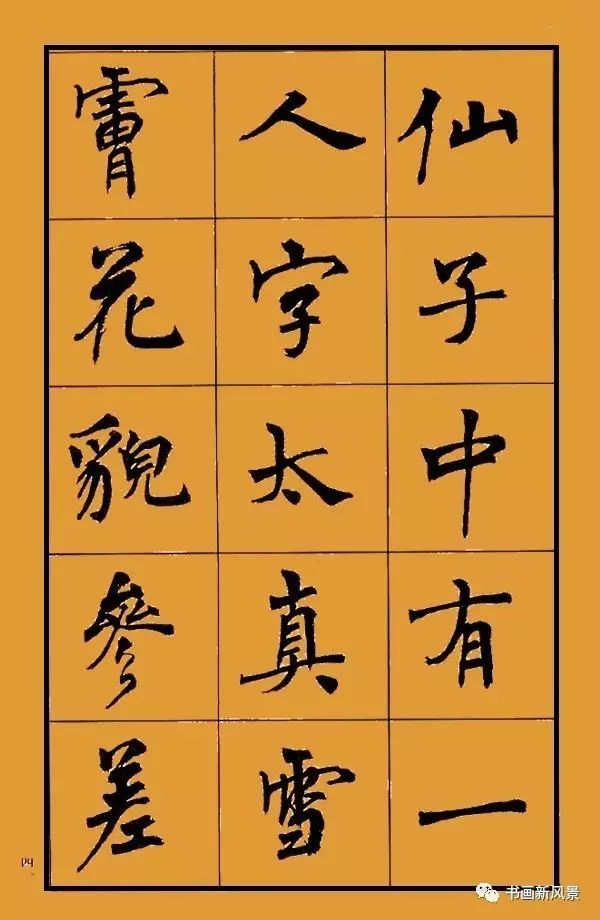 仙子中有一
人字太真雪
膚花貌參差
四
书画新风景